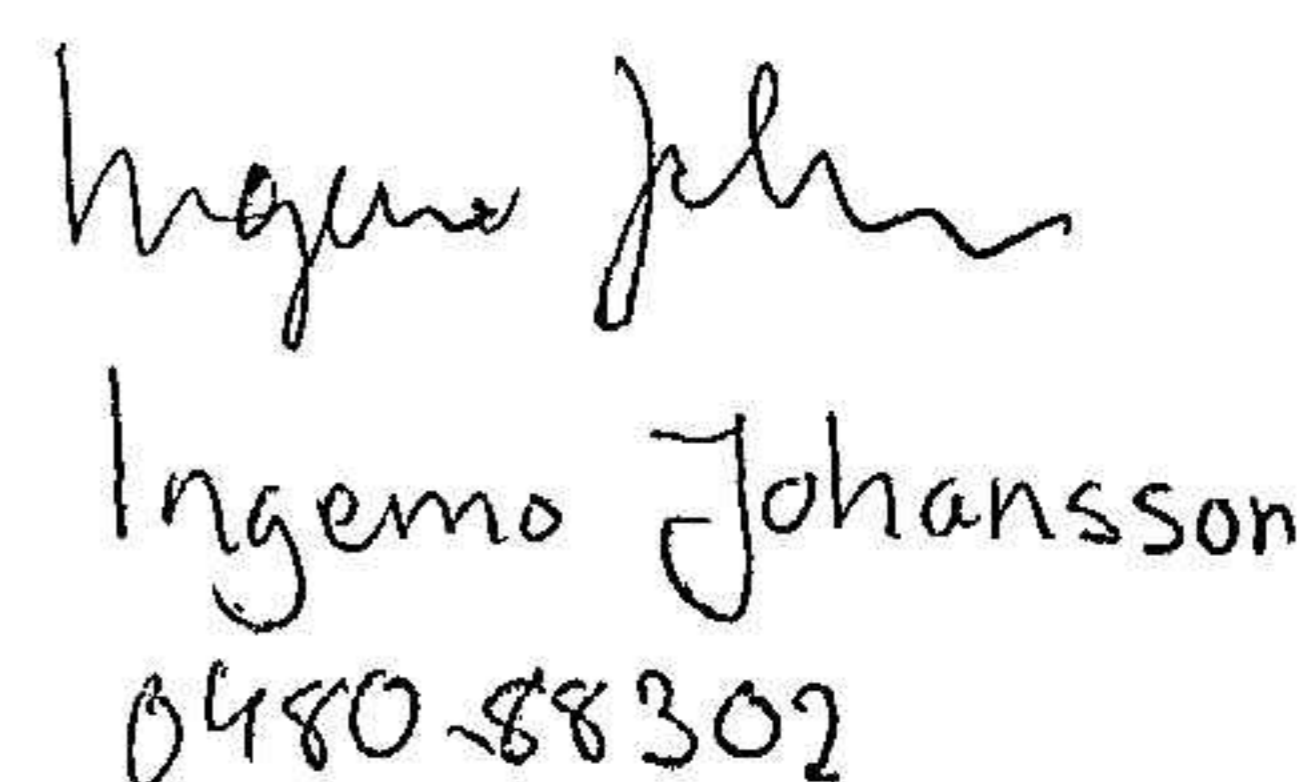 Ingemo Joh
Ingemo Johansson
0480-88302